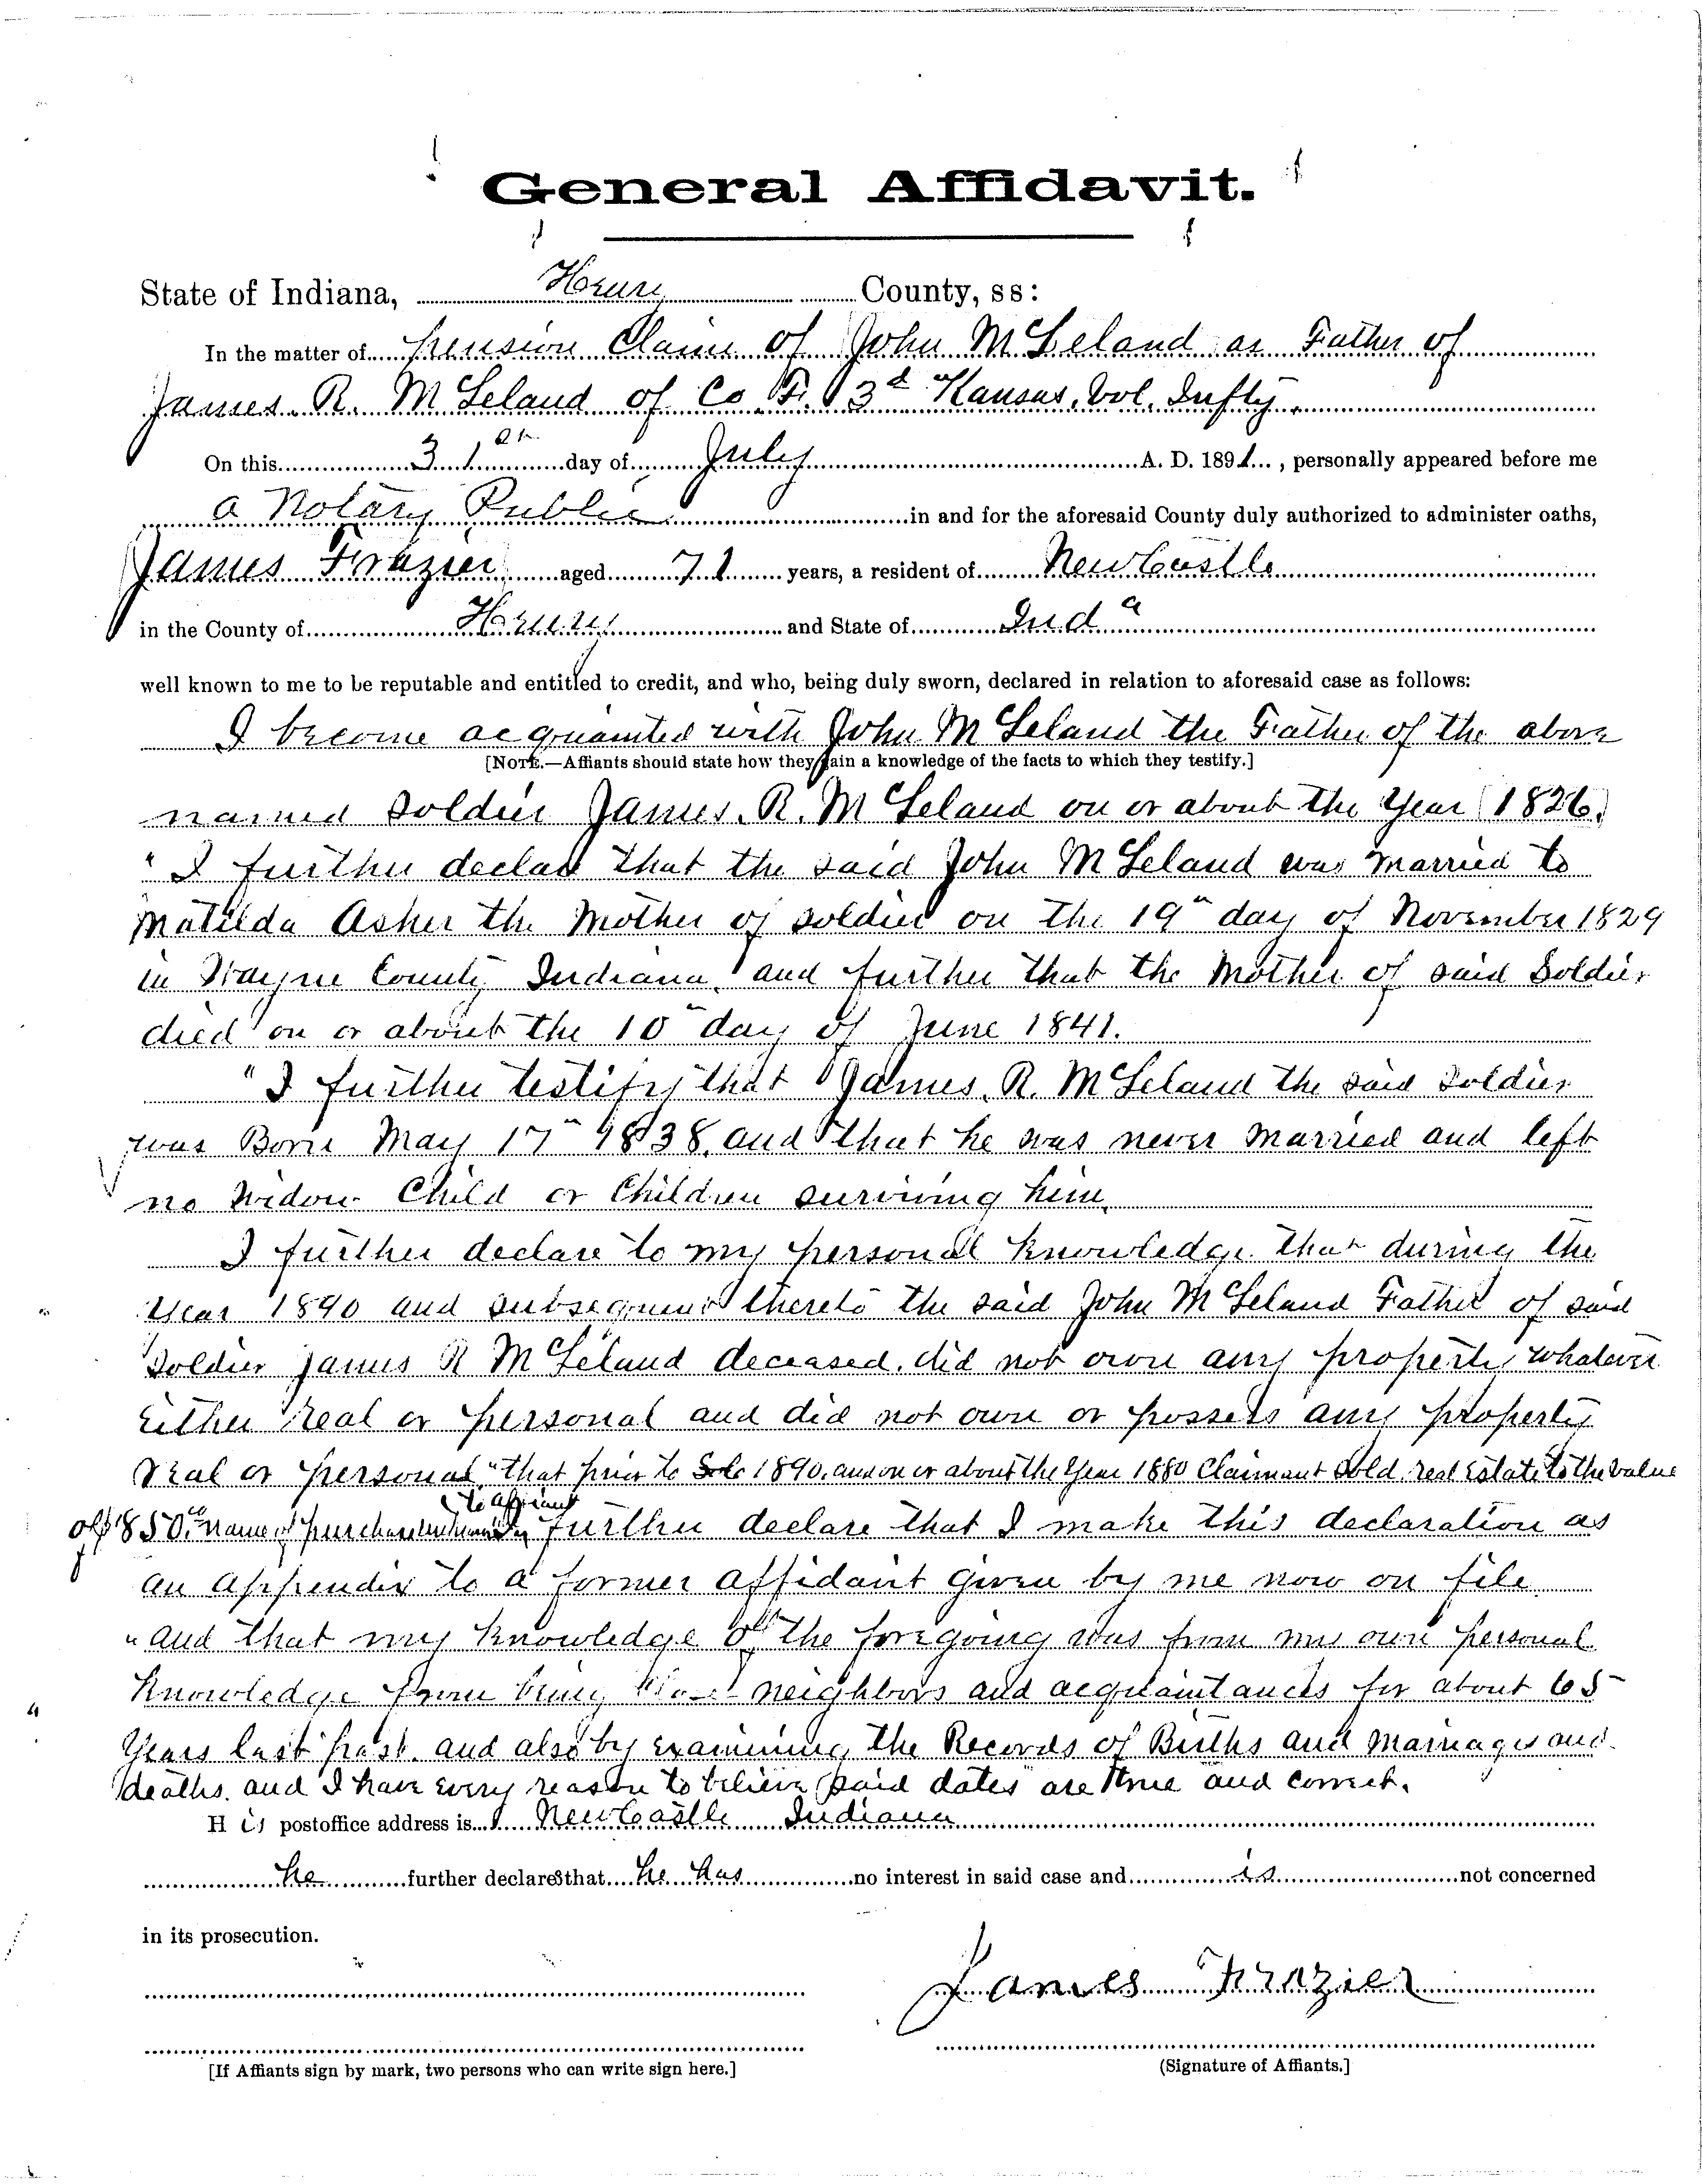 General Affidavit.
State of Indiana, Henry County, ss:
In the matter of pension Claim of John McLeland as Father of
James. R. McLeland of Co. F. 3d Kansas. Vol. Inft'y.
On this 31st day of July A. D. 1891, personally appeared before me
a Notary Public in and for the aforesaid County duly authorized to administer oaths,
James Frazier aged 71 years, a resident of NewCastle
in the County of Henry and State of Inda
well known to me to be reputable and entitled to credit, and who, being duly sworn, declared in relation to aforesaid case as follows:
I become acquainted with John McLeland the Father of the above
[NOTE.—Affiants should state how they gain a knowledge of the facts to which they testify.]
named Soldier James. R. McLeland on or about the Year 1826.
" I further declare that the said John McLeland was Married to
Matilda Asher the Mother of Soldier on the 19" day of November 1829
in Wayne County Indiana. and further that the Mother of said Soldier
died on or about the 10" day of June 1841.
" I further testify that James. R. McLeland the said Soldier
was Born May 17" 1838. and that he was never Married and left
no Widow Child or Children surviving him.
I further declare to my personal Knowledge that during the
Year 1890 and subsequent thereto the said John McLeland Father of said
Soldier James R McLeland deceased. did not own any property whatever
Either real or personal and did not own or possess any property
real or personal " that prior to 1890. and on or about the Year 1880 Claimant Sold real Estate to the value
to affiant
of $850.00 name of purchaser further declare that I make this declaration as
an appendix to a former affidavit given by me now on file
" and that my Knowledge of the foregoing was from my own personal
Knowledge from being neighbors and acquaintances for about 65
Years last past. and also by examining the Records of Births and Marriages and
deaths. and I have every reason to believe said dates are true and correct.
His postoffice address is NewCastle Indiana
he further declares that he has no interest in said case and is not concerned
in its prosecution.
James Frazier
[If Affiants sign by mark, two persons who can write sign here.]
(Signature of Affiants.]